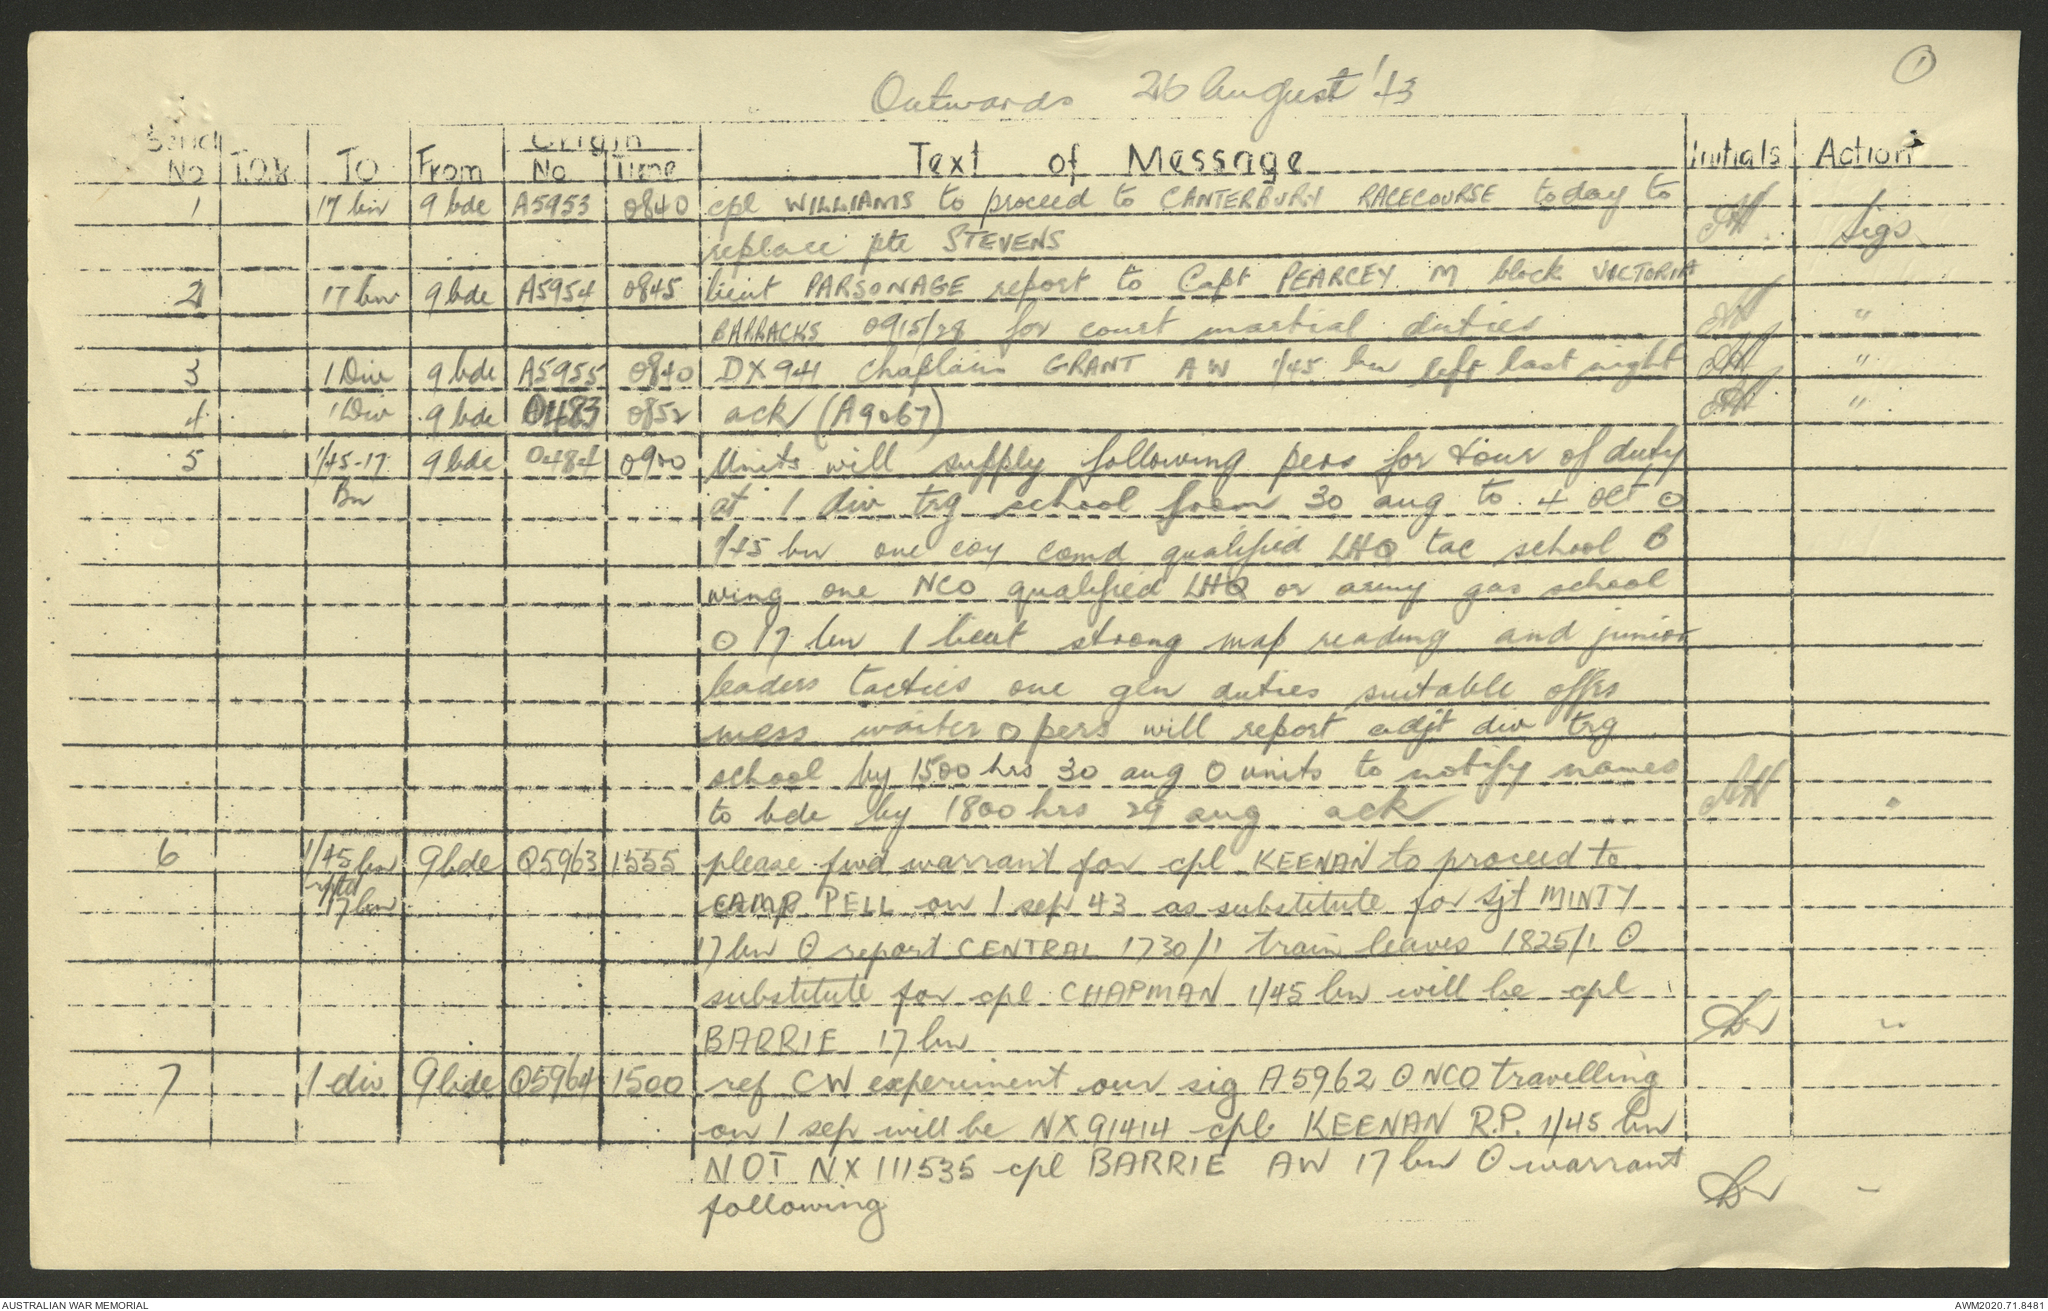 1
Outwards 26 August '43
Serial No T.O.R TO From Origin No Time Text of Message Initials Action
1 17 bn 9 bde A5953 0840 cpl WILLIAMS to proceed to CANTERBURY RACECOURSE today to
replace pte STEVENS Sigs
2 17 bn 9 bde A5954 0845 lieut PARSONAGE report to Capt PEARCEY M block VICTORIA
BARRACKS 0915/28 for court martial duties "
3 1 Div 9 bde A5955 0840 DX941 Chaplain GRANT AW 1/45 bn left last night "
4 1 Div 9 bde O483 0852 ack (A9067) "
5 1/45-17 9 bde O484 0900 Units will supply following pers for tour of duty
Bn at 1 div trg school from 30 aug to 4 oct O
1/45 bn one coy comd qualified LHQ tac school B
wing one NCO qualified LHQ or army gas school
O 17 bn 1 lieut strong map reading and junior
leaders tactics one gen duties suitable offrs
mess waiter O pers will report adjt div trg
school by 1500 hrs 30 aug O units to notify names
to bde by 1800 hrs 29 aug ack "
6 1/45 bn 9 bde Q5963 1555 please fwd warrant for cpl KEENAN to proceed to
rptd 17 bn CAMP PELL on 1 sep 43 as substitute for Sjt MINTY
17 bn O report CENTRAL 1730/1 train leaves 1825/1 O
substitute for cpl CHAPMAN 1/45 bn will be cpl
BARRIE 17 bn "
7 1 div 9 bde Q5964 1500 ref CW experiment our sig A5962 O NCO travelling
on 1 sep will be NX91414 cpl KEENAN R.P. 1/45 bn
NOT NX111535 cpl BARRIE AW 17 bn O warrant
following
AUSTRALIAN WAR MEMORIAL AWM2020.71.8481